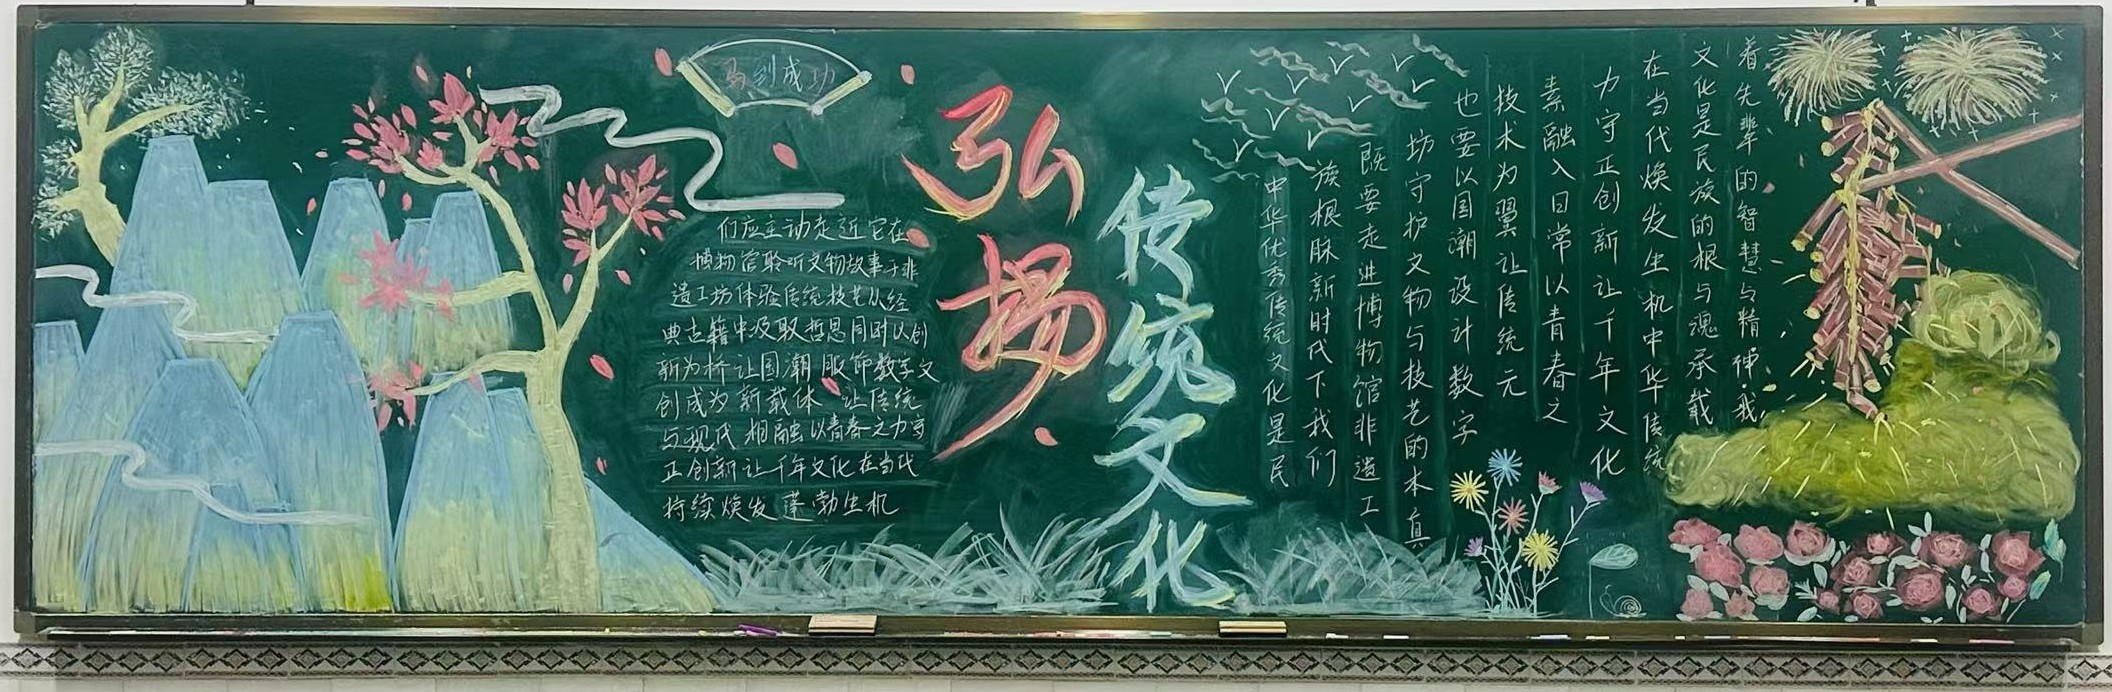 马到成功
弘揚
传统文化
中华优秀传统文化是民
族根脉新时代下我们
既要走进博物馆非遗工
坊守护文物与技艺的本真
也要以国潮设计数字
技术为翼让传统元
素融入日常以青春之
力守正创新让千年文化
在当代焕发生机中华传统
文化是民族的根与魂承载
着先辈的智慧与精神我
们应主动走近它在
博物馆聆听文物故事于非
遗工坊体验传统技艺从经
典古籍中汲取哲思同时以创
新为桥让国潮服饰数字文
创成为新载体 让传统
与现代相融以青春之力守
正创新让千年文化在当代
持续焕发蓬勃生机